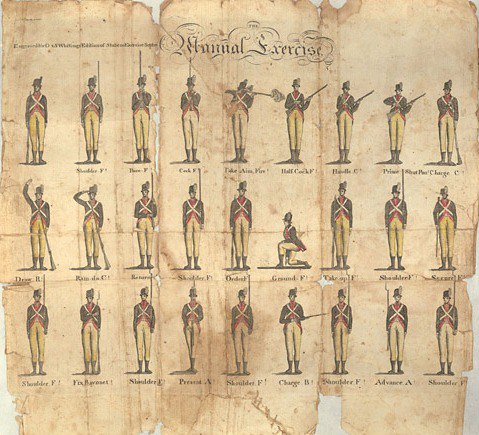 THE
Manual Exercise
Shoulder F!
Poise F!
Cock F!
Take Aim, Fire!
Half Cock F!
Handle C!
Prime
Shut Pan! Charge C!
Draw R!
Ram do. C!
Return
Shoulder F!
Order F!
Ground F!
Take up F!
Shoulder F!
Secure F!
Shoulder F!
Fix Bayonet!
Shoulder F!
Present A!
Shoulder F!
Charge B!
Shoulder F!
Advance A
Shoulder F!